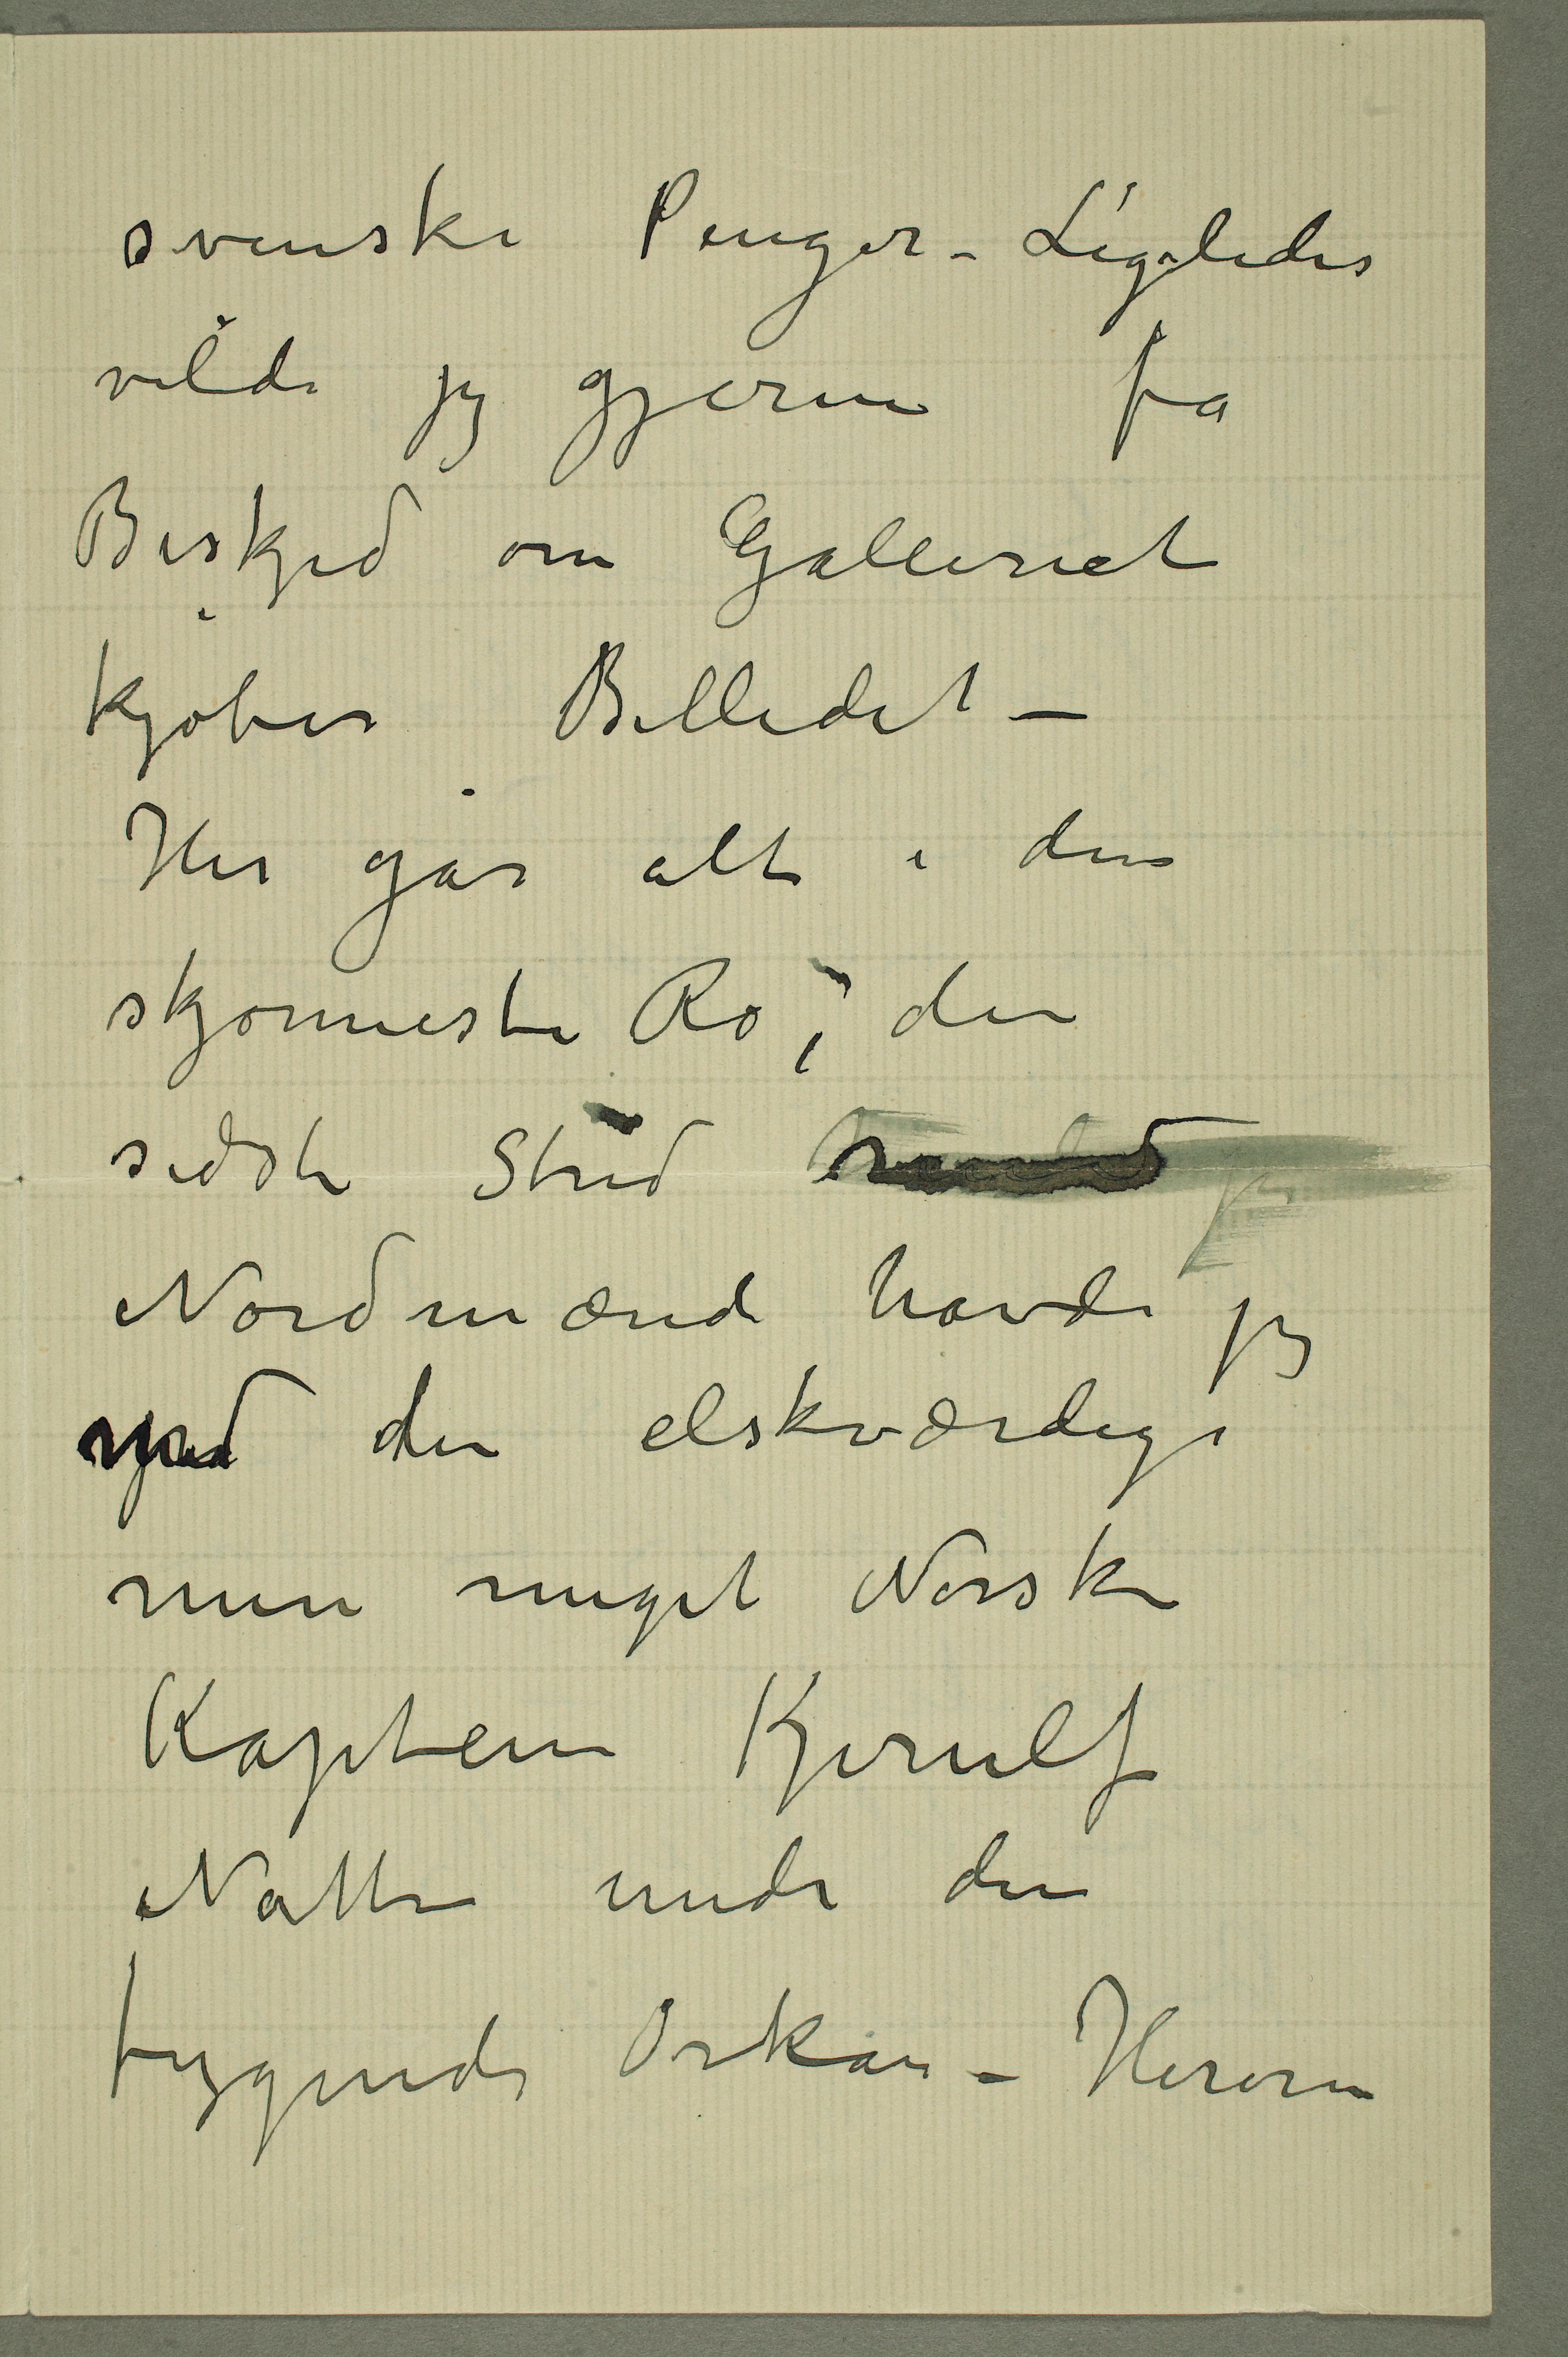 svenske Penger – Ligeledes
vilde jeg gjerne få
Beskjed om Galleriet
kjøber Billedet –
Her går alt i den
skjønneste Ro, den
sidste Strid
Nordmænd havde jeg
med den elskværdige
men meget Norske
Kaptein Kjerulf
Natten under den
rygende Orkan – Herom